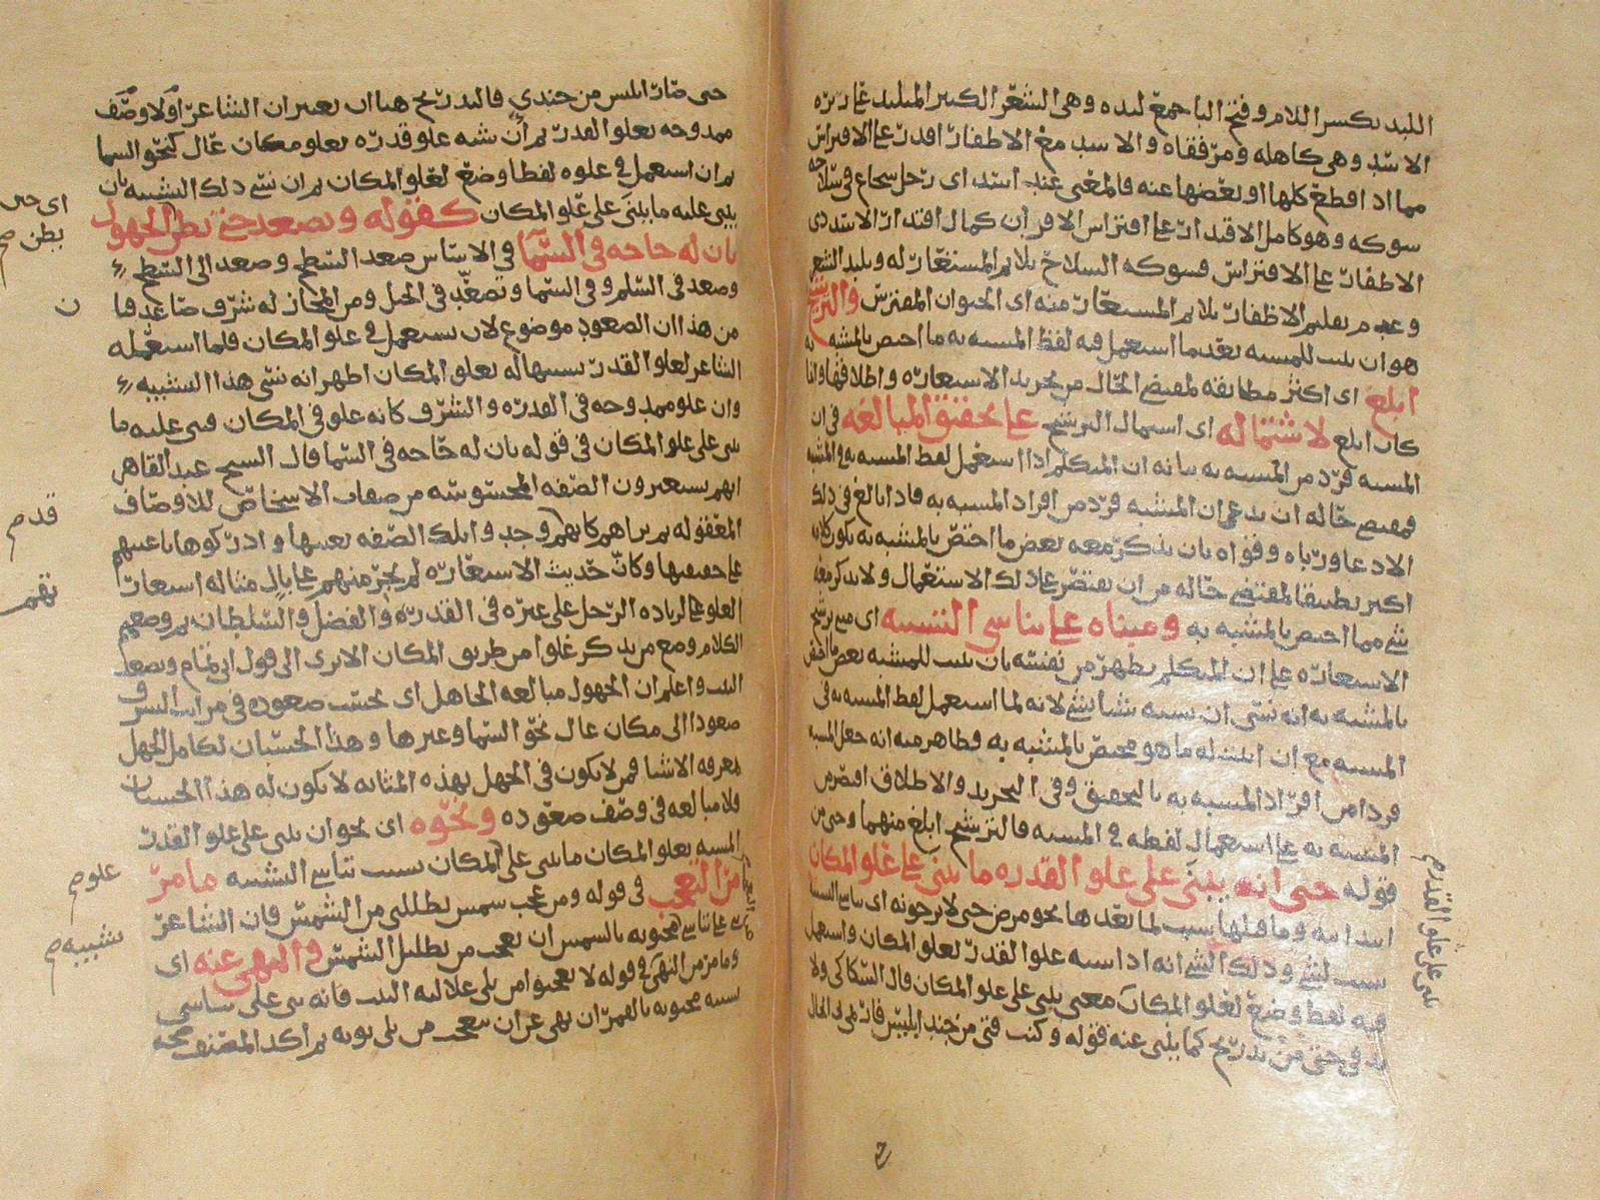 اللبد بكسر اللام وفتح البا جمع لبده وهي الشعر الكثير المتلبد على زبره
الاسد وهي كاهله ومرفقاه والاسد مع الاظفار اقدر على الافتراس
مما اذا قطع كلها او بعضها عنه فالمعنى عند اسد اى رجل شجاع في سلاحه
شوكه وهو كامل الاقتدار على افتراس الاقران كمال اقتدار الاسد ذى
الاظفار على الافتراس فشوكه السلاح يلايم المستعار له وتلبد الشعر
وعدم تقليم الاظفار يلايم المستعار منه اى الحيوان المفترس والترشيح
هو ان يثبت للمشبه بعد ما استعمل فيه لفظ المشبه به ما اختص بالمشبه به
ابلغ اى اكثر مطابقه لمقتضى الحال من تجريد الاستعاره واطلاقها وانما
كان ابلغ لاشتماله اى اشتمال الترشيح على تحقيق المبالغه في ان
المشبه فرد من المشبه به بيانه ان المتكلم اذا استعمل لفظ المشبه به في المشبه
فمقتضى حاله ان يدعى ان المشبه فرد من افراد المشبه به فاذا بالغ في ذلك
الادعا ورباه وقواه بان يذكر معه بعض ما اختص بالمشبه به يكون كلامه
اكثر تطبيقا لمقتضى حاله من ان يقتصر على ذلك الاستعمال ولا يذكر معه
شي مما اختص بالمشبه به ومبناه على تناسي التشبيه اى مبنى ترشيح
الاستعاره على ان المتكلم يظهر من نفسه بان يثبت للمشبه بعض ما اختص
بالمشبه به انه نسى ان يشبه شيا بشي لانه لما استعمل لفظ المشبه به في
المشبه مع ان اثبت له ما هو مختص بالمشبه به فظاهر منه انه جعل المشبه
فردا من افراد المشبه به بالتحقيق وفي التجريد والاطلاق اقتصر من
المشبه به على استعمال لفظه في المشبه فالترشيح ابلغ منهما وحتى من
قوله حتى انه يبنى على علو القدره ما يبنى على علو المكان
ابتدائيه وما قبلها سبب لما بعدها نحو مرض حتى لا يرجونه اى تناسي التشبيه
سبب لشي وذلك الشي انه اذا شبه علو القدر بعلو المكان واستعمل
فيه لفظ وضع لعلو المكان معنى يبنى على علو المكان قال السكاكي ولا
بد في حتى من تدريج كما يبنى عنه قوله وكنت فتى من جند ابليس فارتمى بى الحال
يبنى على علو القدر م
حتى صار ابليس من جندي فالتدريج هنا ان يعتبر ان الشاعر اولا وصف
ممدوحه بعلو القدر ثم ان شبه علو قدره بعلو مكان عال كنحو السما
ثم ان استعمل في علوه لفظا وضع لعلو المكان ثم ان نسى ذلك التشبيه بان
يبنى عليه ما يبنى على علو المكان كقوله ويصعد حتى يظن الجهول
بان له حاجه في السما في الاساس صعد السطح وصعد الى السطح
وصعد في السلم وفي السما وتصعد في الجبل ومن المجاز له شرف صاعد فا
من هذا ان الصعود موضوع لان يستعمل في علو المكان فلما استعمله
الشاعر لعلو القدر تشبيها له بعلو المكان اظهر انه نسى هذا التشبيه
وان علو ممدوحه في القدره والشرف كانه علو في المكان فبنى عليه ما
يبنى على علو المكان في قوله بان له حاجه في السما قال الشيخ عبد القاهر
انهم يستعيرون الصفه المحسوسه من صفات الاشخاص للاوصاف
المعقوله ثم تراهم كانهم وجدوا تلك الصفه بعينها وادركوها باعينهم
على حقيقتها وكان حديث الاستعاره لم يجر منهم على بال مثاله استعار
العلو على لزياده الرجل على غيره في القدره والفضل والسلطان ثم وضعهم
الكلام وضع من يذكر علوا من طريق المكان الا ترى الى قول ابى تمام ويصعد
البيت واعلم ان الجهول مبالغه الجاهل اى بحسب صعوده في مراتب الشرف
صعودا الى مكان عال نحو السما وغيرها وهذا الحسبان لكامل الجهل
بمعرفه الاشيا فمن لا يكون في الجهل بهذه المثابه لا يكون له هذا الحسبان
فلا مبالغه في وصف صعوده ونحوه اى نحو ان يبنى على علو القدر
المشبه بعلو المكان ما يبنى على المكان بسبب تناسي التشبيه ما مر
من التعجب في قوله ومن عجب شمس تظللني من الشمس فان الشاعر
على تناسي محبوبه بالشمس ان تعجب من تظليل الشمس والنهى عنه اى
وما مر من النهى في قوله لا تعجبوا من بلى غلالته البيت فانه بنى على تناسي
تشبيه محبوبه بالقمر ان نهى عن ان يتعجب من بلى ثوبه ثم اكد المصنف صحه
اى حتى
يظن صح
ن
قدم
علو م
تشبيه م